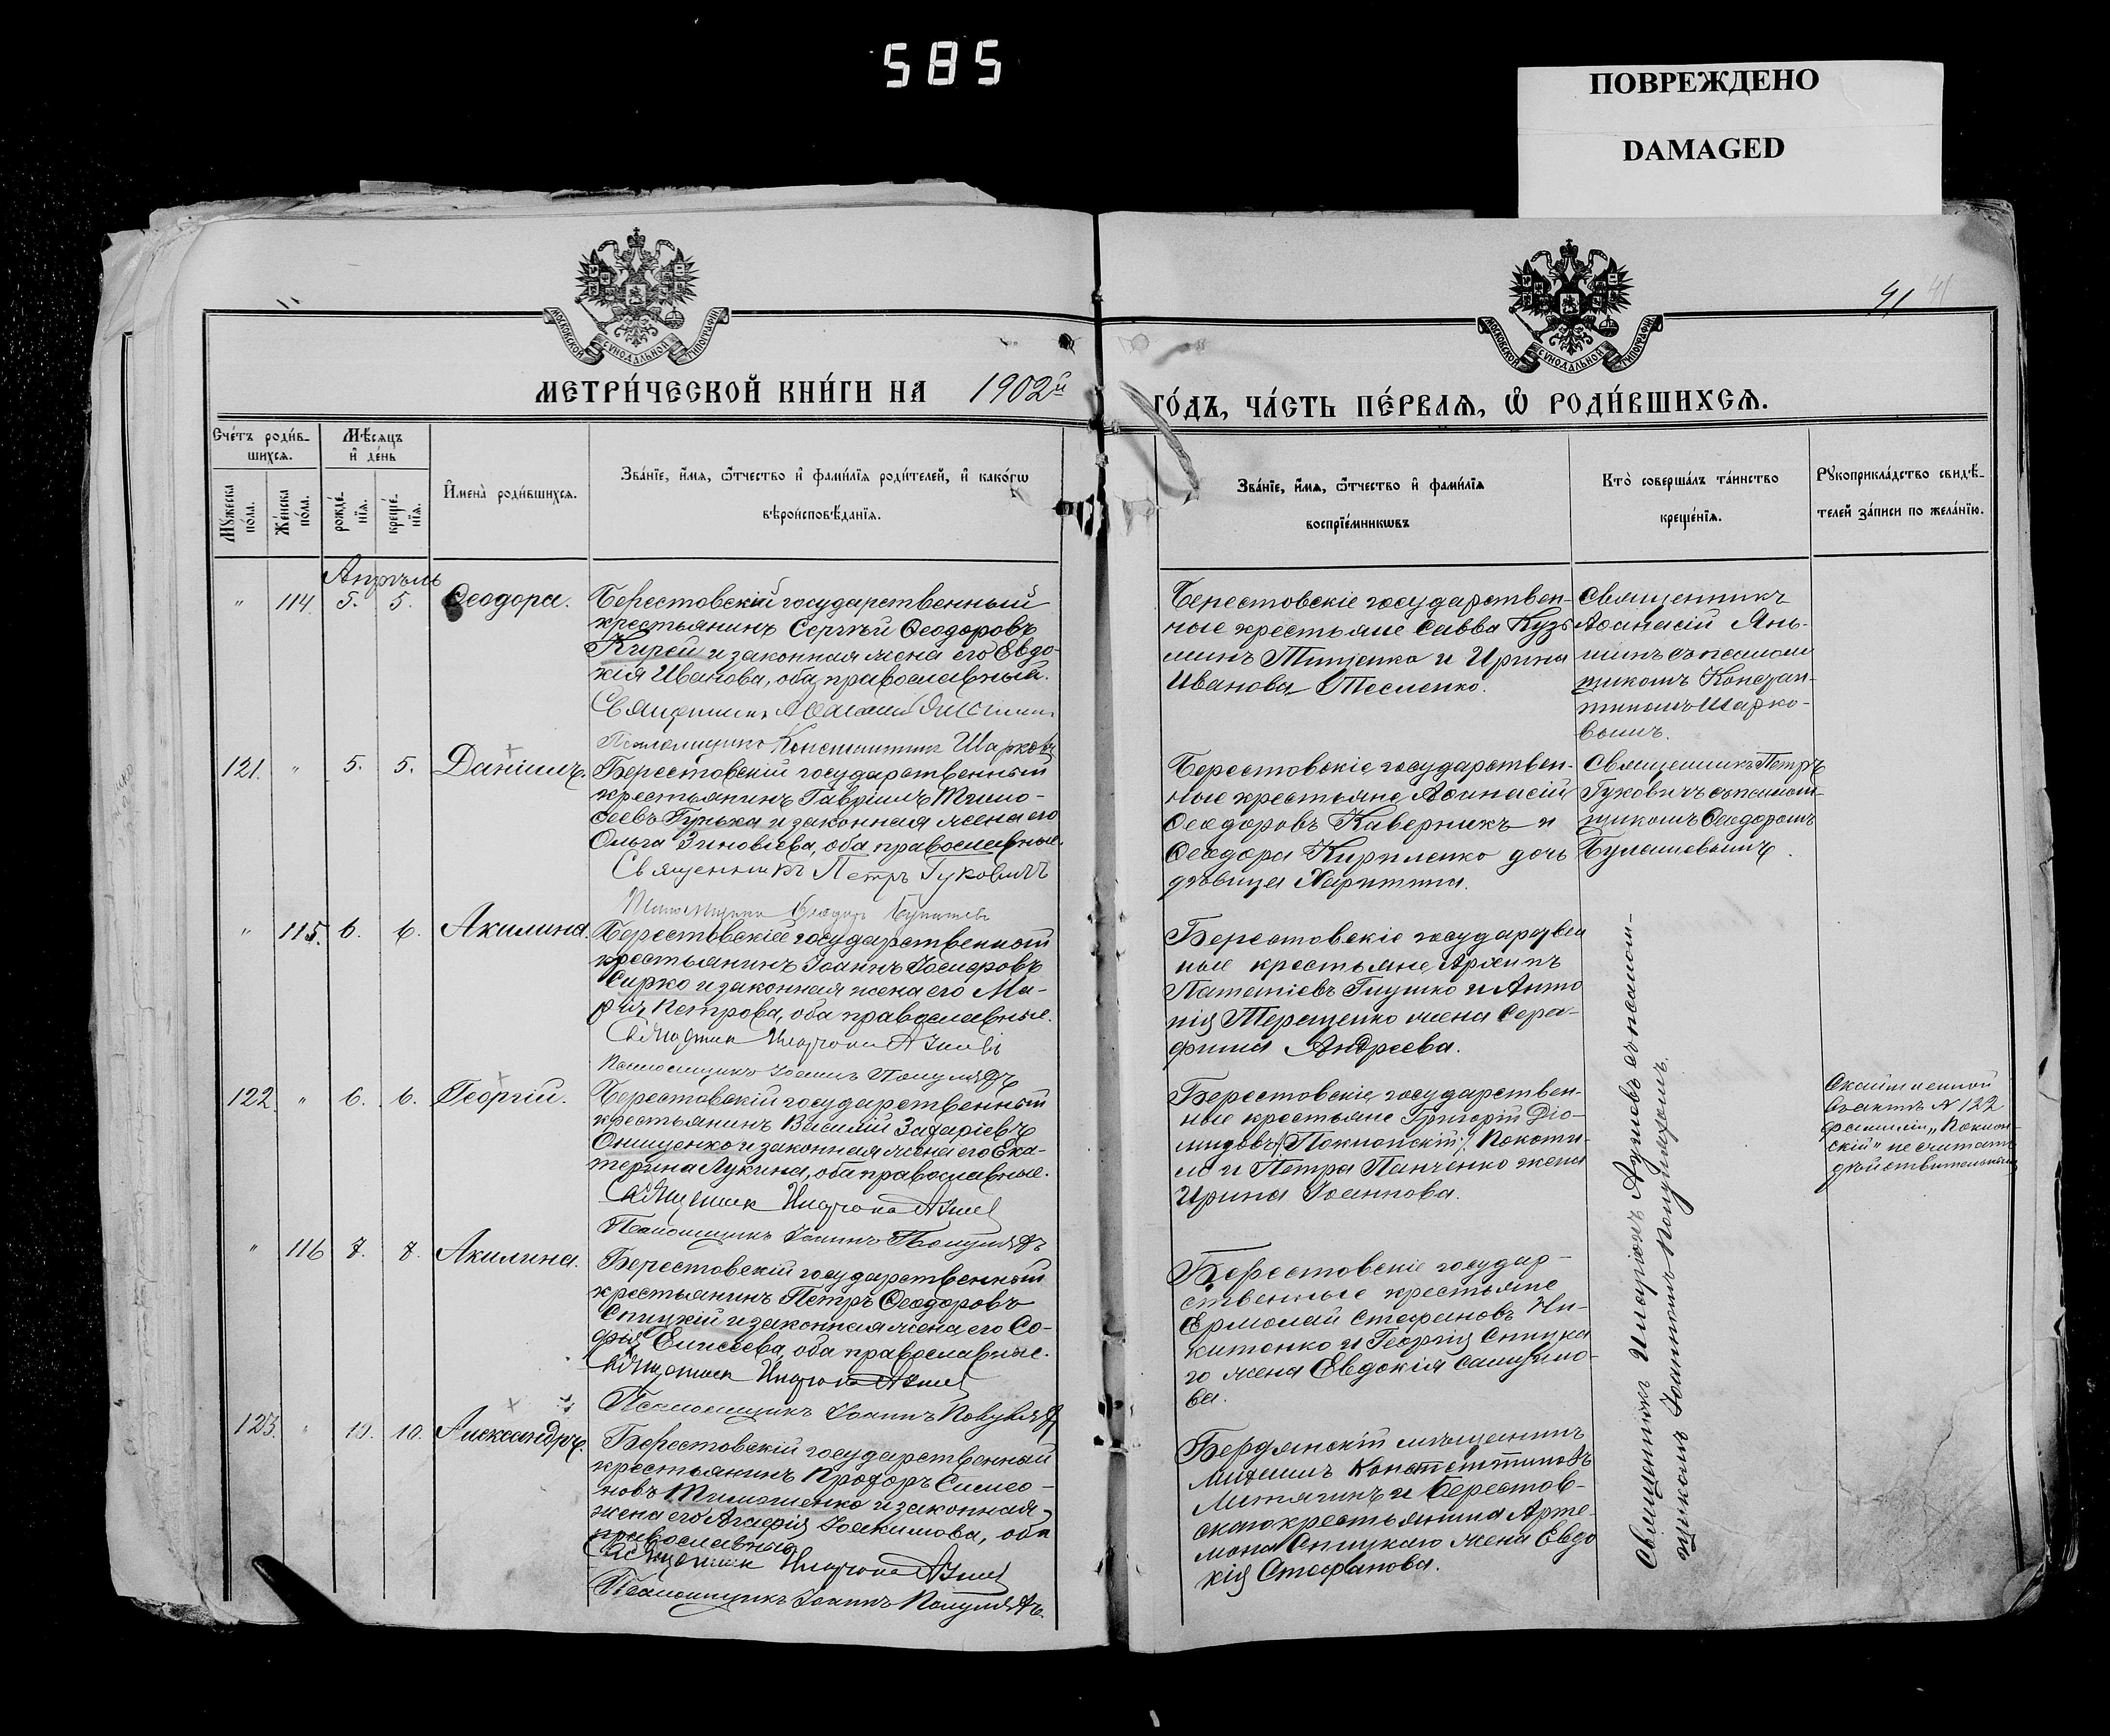 585
ПОВРЕЖДЕНО
DAMAGED
41
41
МОСКОВСКОЙ СѴНОДАЛЬНОЙ ТИПОГРАФІИ
МОСКОВСКОЙ СѴНОДАЛЬНОЙ ТИПОГРАФІИ
МЕТРИ́ЧЕСКОЙ КНИ́ГИ НА 1902й
ГО́ДЪ, ЧА́СТЬ ПЕ́РВАЯ, Ѡ҆ РОДИ́ВШИХСЯ.
Счётъ роди́в-
шихся.
Мѣ́сяцъ
и҆ де́нь
Мꙋжеска по́ла.
Же́нска по́ла.
рожде́нїя.
креще́нїя.
И҆мена̀ роди́вшихся.
Зва́нїе, и҆́мя, ѻ҆́тчество и҆ фами́лїя роди́телей, и҆ како́гѡ
вѣроисповѣ́данїя.
Зва́нїе, и҆́мя, ѻ҆́тчество и҆ фами́лїя
воспрїе́мникѡвъ
Кто̀ соверша́лъ та́инство
креще́нїя.
Рꙋкоприкла́дство свидѣ́-
телей за́писи по жела́нїю.
Апрѣль
" 114. 5. 5. Ѳеодора.
Берестовскій государственный
крестьянинъ Сергѣй Ѳеодоровъ
Кирей и законная жена его Евдо-
кія Иванова, оба православныи.
Священникъ Аѳанасій
Псаломщикъ Константинъ Шарковъ
Берестовскіе государствен-
ные крестьяне Савва Кузь
минъ Тищенко и Ирина
Иванова Тесленко.
Священникъ
Аѳанасій Янь-
шинъ съ псалом
щикомъ Констан-
тиномъ Шарко-
вымъ.
121. " 5. 5. Даніилъ.
Берестовскій государственный
крестьянинъ Гавріилъ Тимо-
ѳеевъ Гунька и законная жена его
Ольга Зиновіева, оба православные.
Священникъ Петръ Гуковичъ
Псаломщикъ Ѳеодоръ
Берестовскіе государствен-
ные крестьяне Аѳанасій
Ѳеодоровъ Каверникъ и
Ѳеодора Кириленко дочь
дѣвица Харитина.
Священникъ Петръ
Гуковичъ съ псалом-
щикомъ Ѳеодоромъ
" 115. 6. 6. Акилина.
Берестовскій государственный
крестьянинъ Іоаннъ Іосифовъ
Сирко и законная жена его Ма-
рія Петрова, оба православные.
Священник Иларіонъ
Псаломщикъ Іоаннъ
Берестовскіе государствен
ные крестьяне Архипъ
Глушко и Анто
нія Терещенко жена Сера-
фима Андреева.
122. " 6. 6. Георгій.
Берестовскій государственный
крестьянинъ Василій Захаріевъ
Онищенко и законная жена его Ека-
терина Лукина, оба православные.
Священник Иларіонъ
Псаломщикъ Іоаннъ
Берестовскіе государствен-
ные крестьяне Григорій Діо-
мидовъ /Поклонскій/ Покоти-
ло и Петра Панченко жена
Ирина Іоаннова.
въ актѣ N 122
фамиліи „Поклон-
скій" не считать
дѣйствительною
" 116 7. 8. Акилина.
Берестовскій государственный
крестьянинъ Петръ Ѳеодоровъ
Спицкій и законная жена его Со-
фія Елисеева, оба православные.
Священник Иларіонъ
Псаломщикъ Іоаннъ
Берестовскіе государ-
ственные крестьяне
Ермолай Стефановъ Ни-
китенко и Георгія Спицка
го жена Евдокія Самуило-
ва.
123. " 10. 10. Александръ.
Берестовскій государственный
крестьянинъ Прохоръ Симео-
новъ Тимошенко и законная
жена его Агафія Іоакимова, оба
православные
Священник Иларіонъ
Псаломщикъ Іоаннъ
Бердянскій мѣщанинъ
Константиновъ
и Берестов-
скаго крестьянина Арте-
мона Спицкаго жена Евдо
кія Стефанова.
Священникъ Иларіонъ съ псалом-
щикомъ Іоанномъ